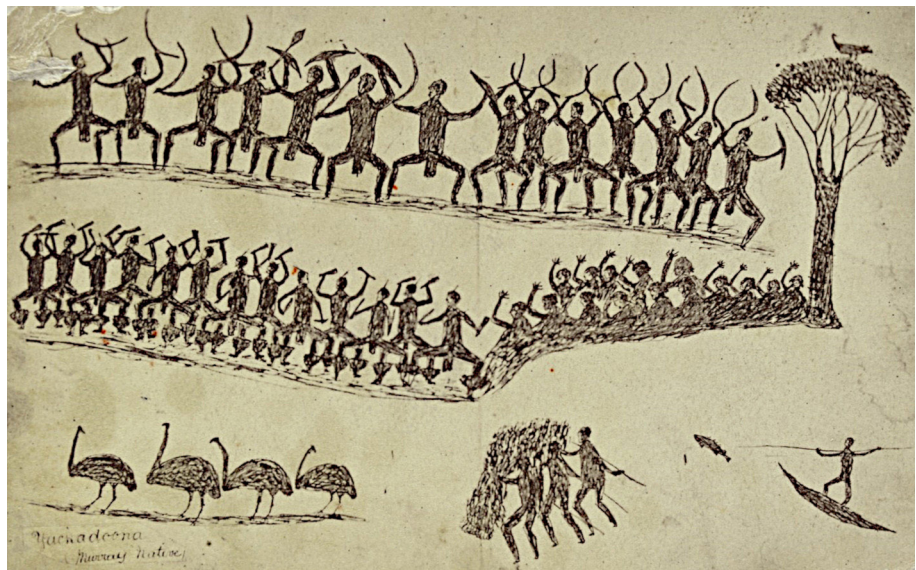 Yackadoona
Murray Native